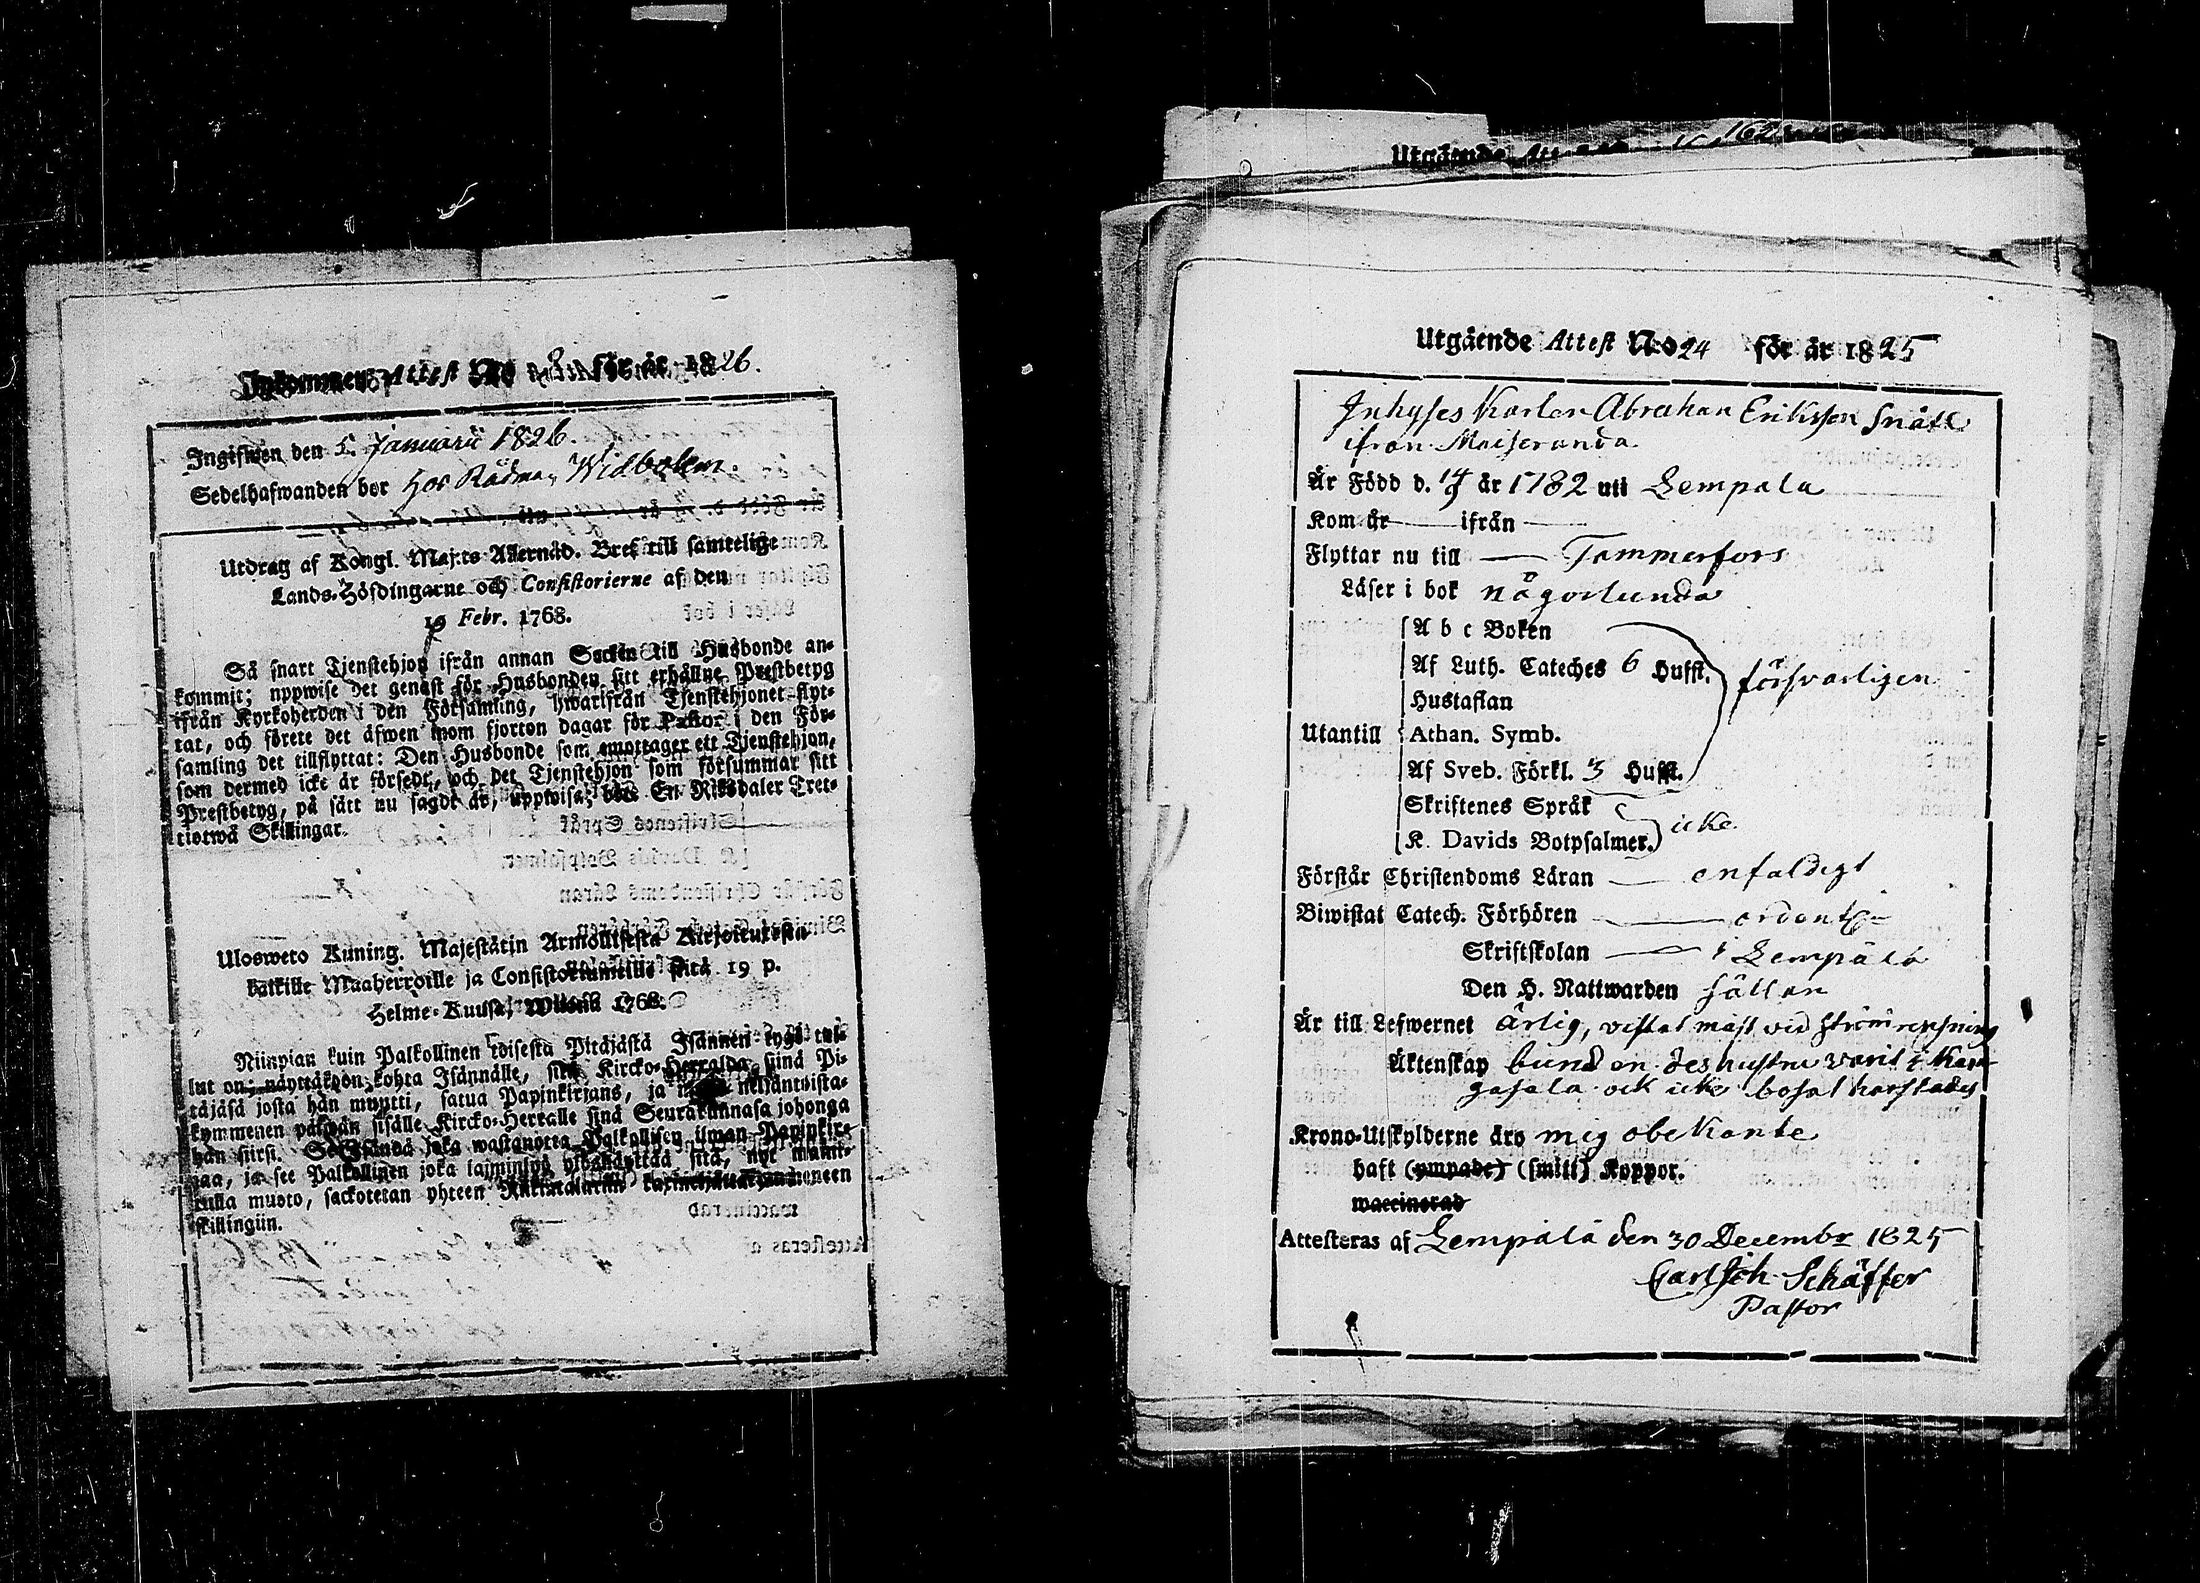 Inkommen Attest No 2 för år 1826.
Ingifwen den 5 Januarii 1826.
Sedelhafwanden bor hos Rådman Widbohm.
Utdrag af Kongl. Maj:ts Allernåd. Bref till samtelige
Lands-Höfdingarne och Consistorierne af den
19 Febr. 1768.
Så snart Tjenstehjon ifrån annan Socken till Husbonde an-
kommit; uppwise det genast för Husbonden sitt erhållne Prestbetyg
ifrån Kyrkoherden i den Församling, hwarifrån Tjenstehjonet flyt-
tat, och förete det äfwen inom fjorton dagar för Pastor i den För-
samling det tillflyttat: Den Husbonde som emottager ett Tjenstehjon,
som dermed icke är försedt, och det Tjenstehjon som försummar sitt
Prestbetyg, på sätt nu sagdt är, uppwisa, böte En Riksdaler Tret-
tiotwå Skillingar.
Ulosweto Kuning. Majestätin Armollisesta Kirjoituxesta
kaikille Maaherroille ja Consistoriumeille siitä 19 p.
Helme-Kuusa, Wuona 1768.
Niinpian kuin Palkollinen toisesta Pitäjästä Isännen tygö tul-
lut on; näyttäköön kohta Isännälle, sen Kircko-Herralda siinä Pi-
täjäsä josta hän muutti, saatua Papinkirjans, ja neljäntoista-
kymmenen päiwän sisälle Kircko-Herralle siinä Seurakunnasa johonga
hän siirsi. Se Isändä joka wastanotta Palkollisen ilman Papinkir-
jaa, ja see Palkollinen joka laiminlyö ylösnäyttää sitä, nyt mainit-
tulla muoto, sackotetan yhteen Riikintalariin kaxineljättäkymmeneen
skillingiin.
Utgående Attest
Utgående Attest No 24 för år 1825
Inhyses Karlen Abraham Eriksson Snäll
ifrån Maiseranda
Är Född d. 14/9 år 1782 uti Lempala
Kom år — ifrån —
Flyttar nu till — Tammerfors
Läser i bok någorlunda
A b c Boken
Af Luth. Cateches 6 Hufst. försvarligen
Hustaflan
Utantill Athan. Symb.
Af Sveb. Förkl. 3 Hufst.
Skriftenes Språk
K. Davids Botpsalmer. icke
Förstår Christendoms Läran — enfaldigt
Biwistat Catech. Förhören — ordentl.
Skriftskolan — i Lempälä
Den H. Nattwarden sällan
Är till Lefwernet ärlig, vistat mäst vid strömrensning
Äktenskap bunden. des hustru varit i Kan-
gasala och icke bosat harstädes
Krono-Utskylderne äro mig obekante
haft (ympade) (smitt) Koppor.
waccinerad
Attesteras af Lempälä den 30 Decembr 1825
Carl Joh. Schäffer
Pastor